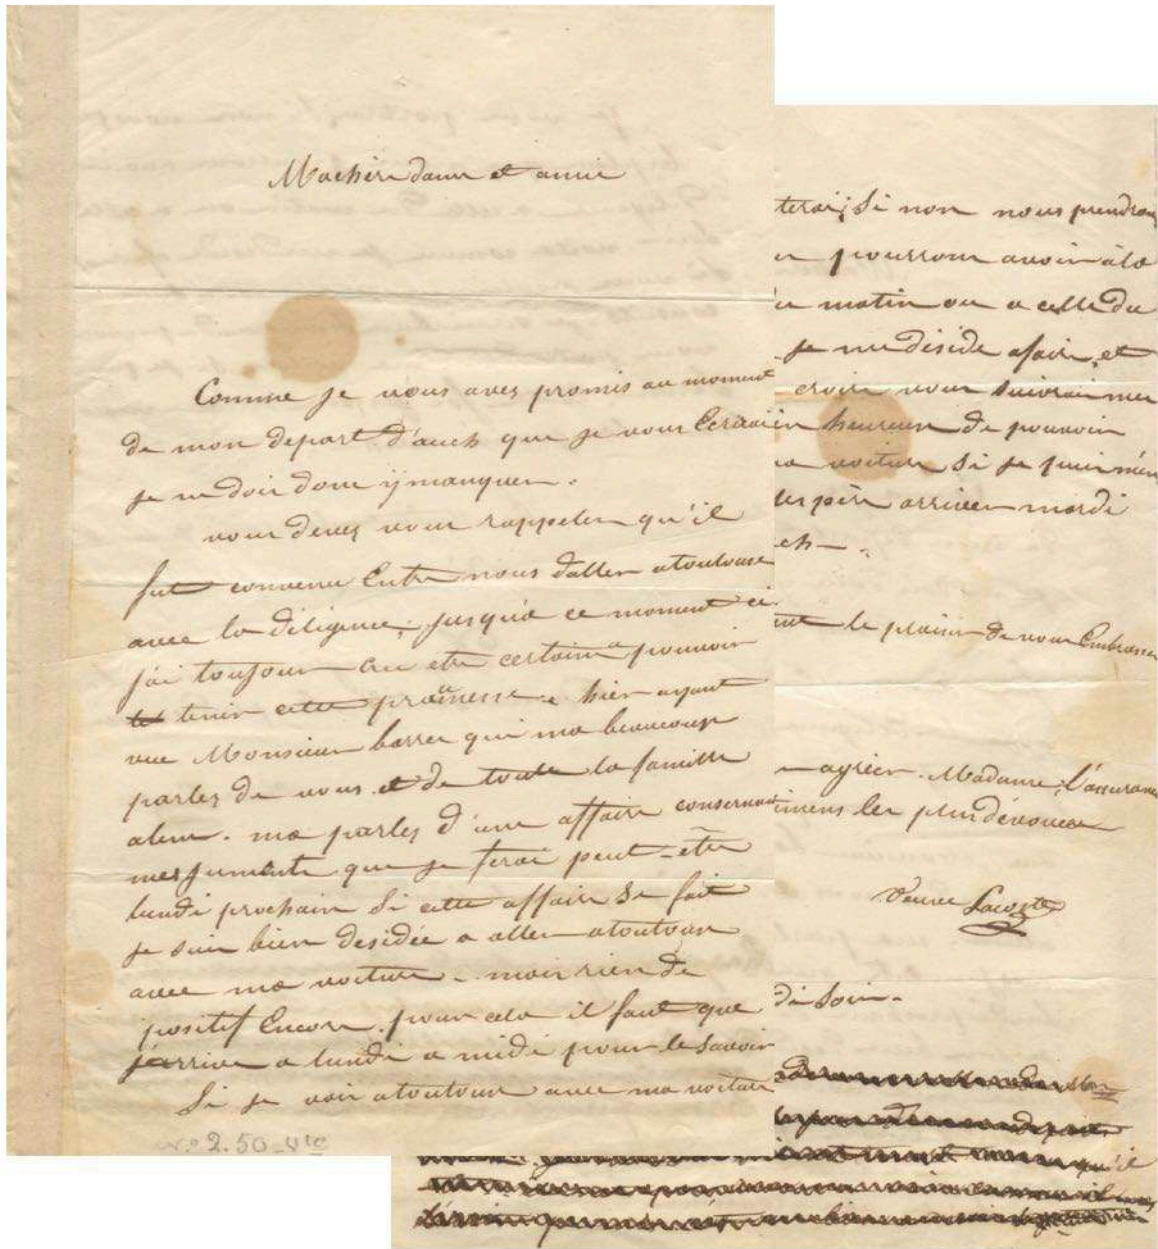 Machère dam et amie
Comme je vous aves promis au moment
de mon depart d'auch que je vous Ecri
je ne doir donc y manquer.
vous deves vous rappeler qu'il
fut convenu Entre nous daller atoulouse
avec la diligence, jusqu'a ce moment ci
j'ai toujour cru etre certaine a pouvoir
tenir cette promesse. hier ayant
vue Monsieur barres qui ma beaucoup
parles de vous et de toute la famille
alem. ma parles d'une affaire consernan
mes juments que je ferai peut-être
lundi prochain Si cette affaire se fait
je suis bien desidée a aller atoulouse
avec ma voiture - mais rien de
positif Encore. pour cela il faut que
j'arrive a lundi a midi pour le savoir
Si je vais atoulouse avec ma voiture
n.º 2.50
terai; Si non nous prendron
pourrons avoir à la
matin ou a celle du
je me déside afaire, et
croire vous Suivrai
heureuse de pouvoir
voiture Si je puis
espère arriver mardi
ch-.
le plaisir de vous Embrasser
agréer. Madame, l'assurance
timens les plus dévoués
Veuve Lacoste
di Soir.
qu'il